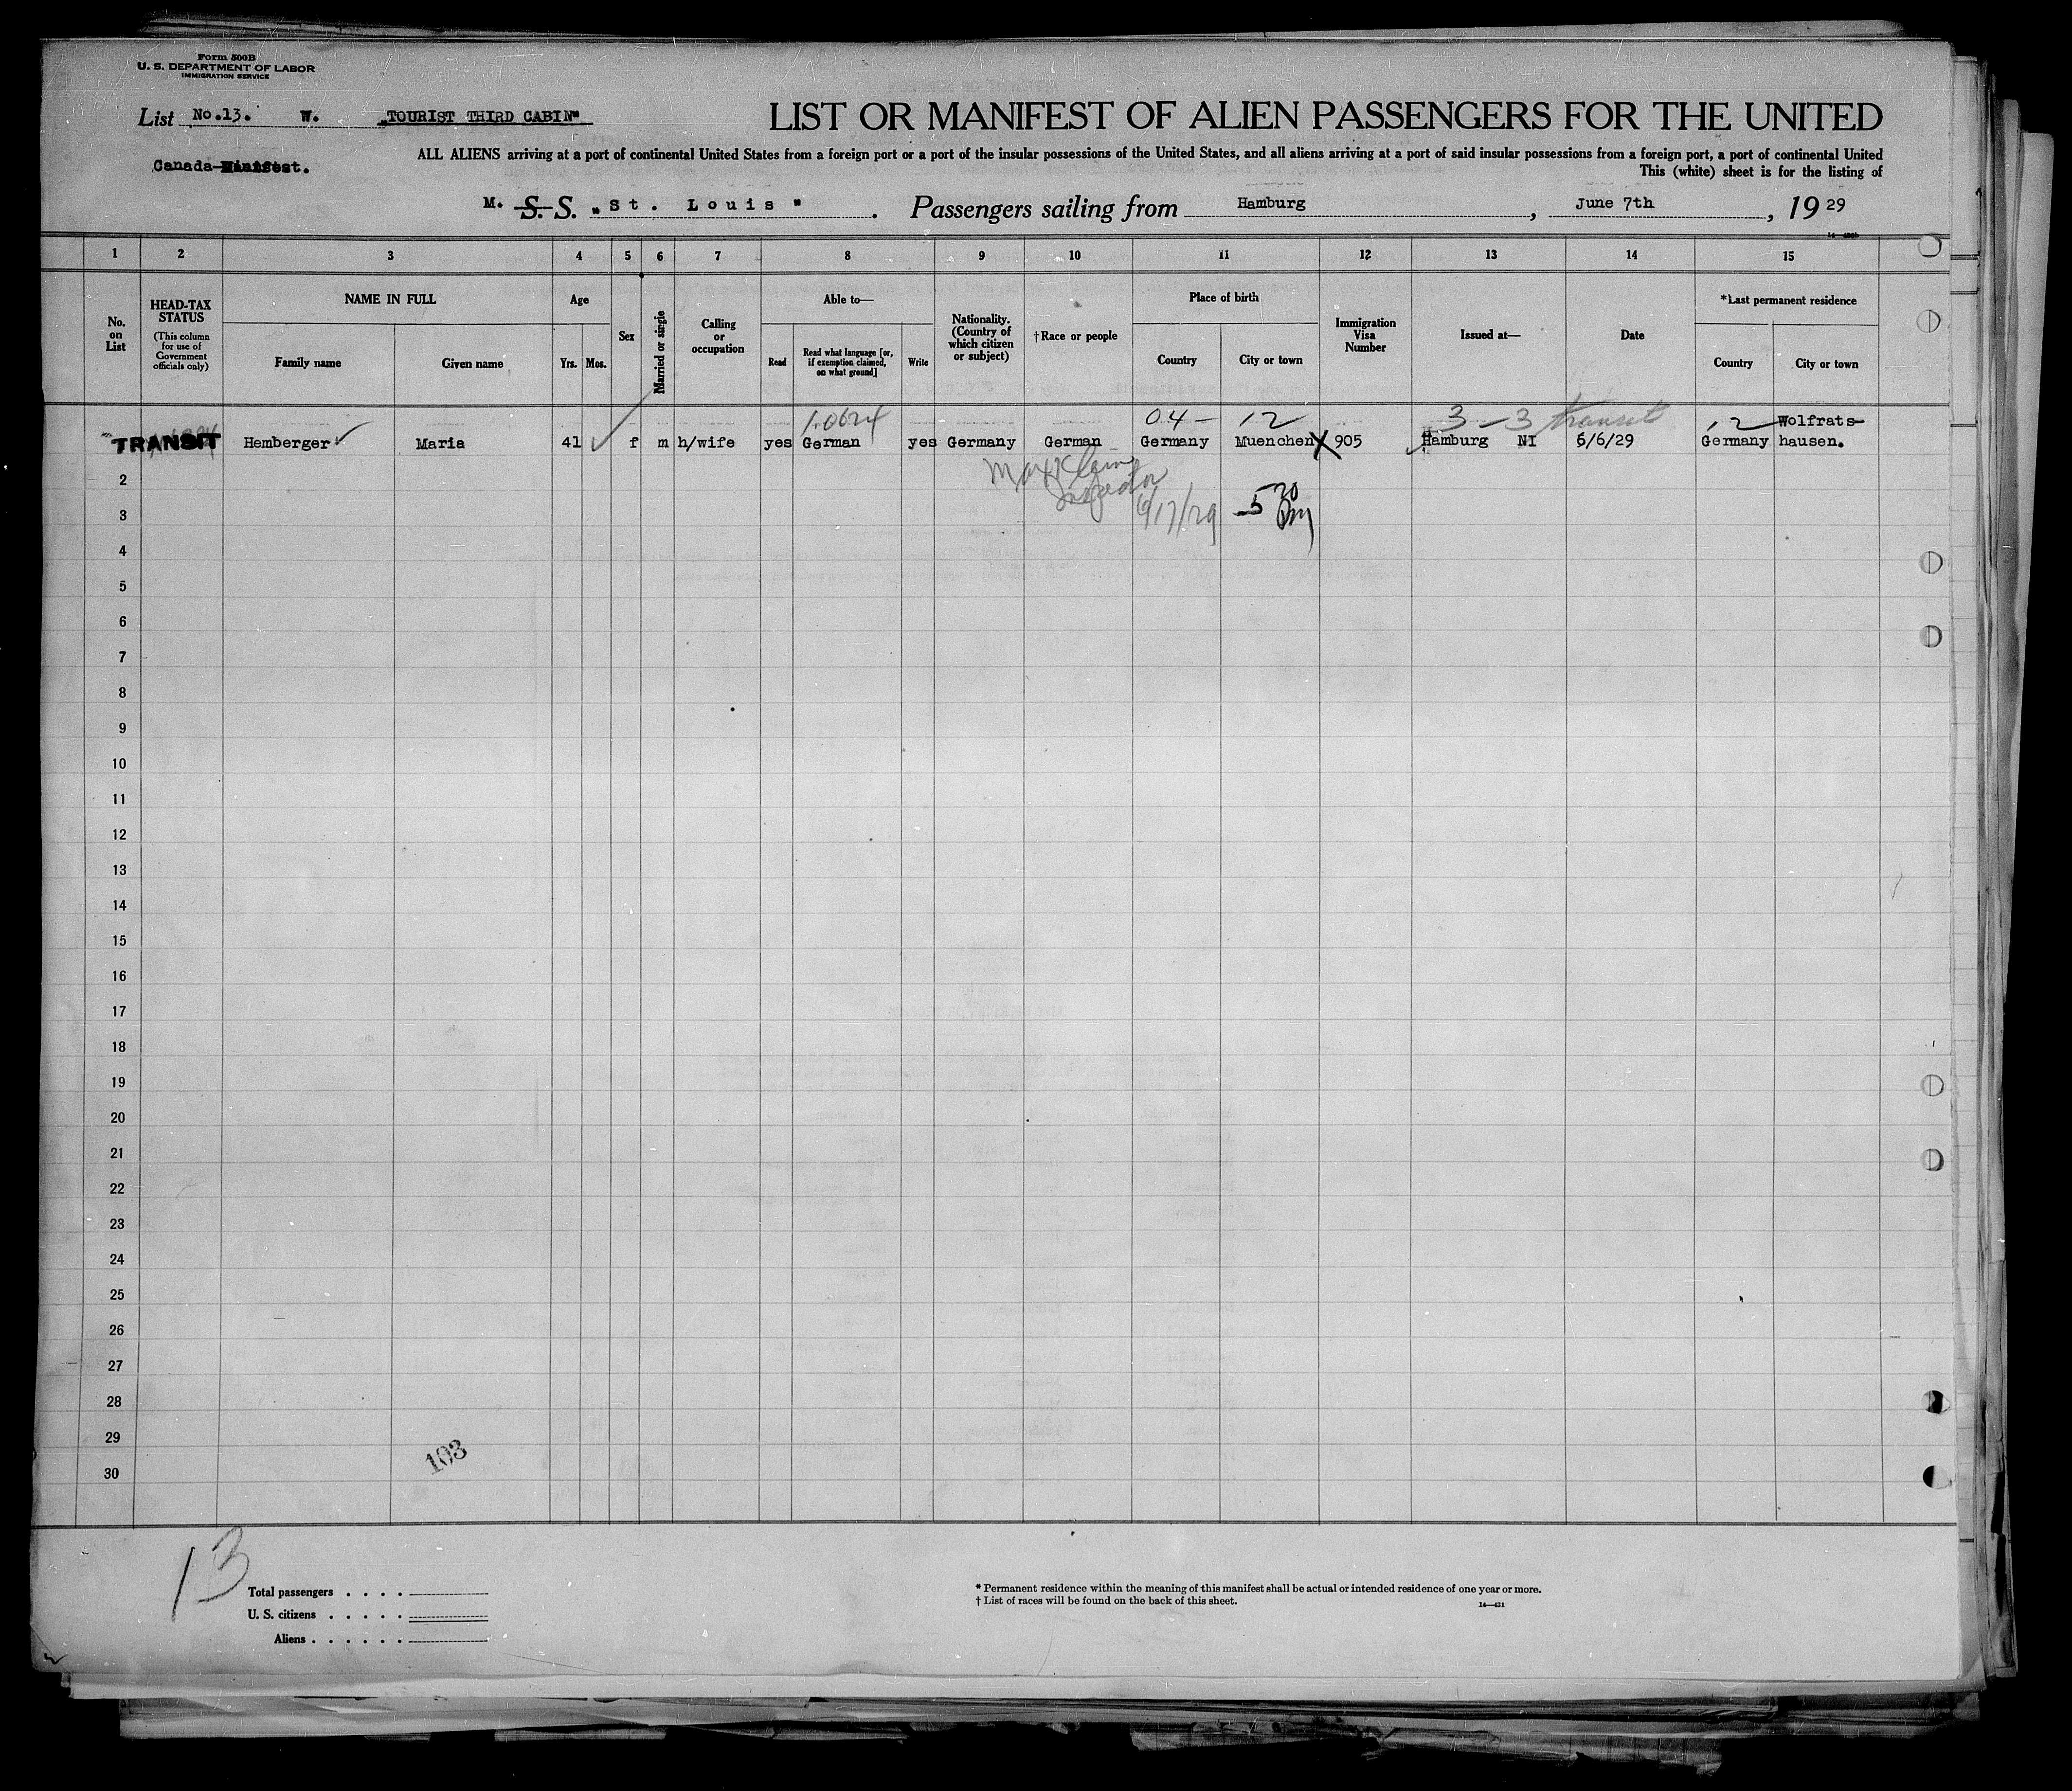 Form 500B
U. S. DEPARTMENT OF LABOR
IMMIGRATION SERVICE
List No.13. W. „TOURIST THIRD CABIN"
LIST OR MANIFEST OF ALIEN PASSENGERS FOR THE UNITED
Canada-Manifest.
ALL ALIENS arriving at a port of continental United States from a foreign port or a port of the insular possessions of the United States, and all aliens arriving at a port of said insular possessions from a foreign port, a port of continental United
This (white) sheet is for the listing of
M. S. S. „St. Louis". Passengers sailing from Hamburg, June 7th, 1929
1 2 3 4 5 6 7 8 9 10 11 12 13 14 15
No. on List
HEAD-TAX STATUS
(This column for use of Government officials only)
NAME IN FULL
Family name
Given name
Age
Yrs. Mos.
Sex
Married or single
Calling or occupation
Able to—
Read
Read what language [or, if exemption claimed, on what ground]
Write
Nationality. (Country of which citizen or subject)
†Race or people
Place of birth
Country
City or town
Immigration Visa Number
Issued at—
Date
*Last permanent residence
Country
City or town
04 - 12 3 - 3 transit 12 Wolfrats-
TRANSIT Hemberger Maria 41 f m h/wife yes German yes Germany German Germany Muenchen X 905 Hamburg NI 6/6/29 Germany hausen.
Inspector
6/17/29 5 30 pm
2
3
4
5
6
7
8
9
10
11
12
13
14
15
16
17
18
19
20
21
22
23
24
25
26
27
28
29
30
103
13
Total passengers
U. S. citizens
Aliens
* Permanent residence within the meaning of this manifest shall be actual or intended residence of one year or more.
† List of races will be found on the back of this sheet.